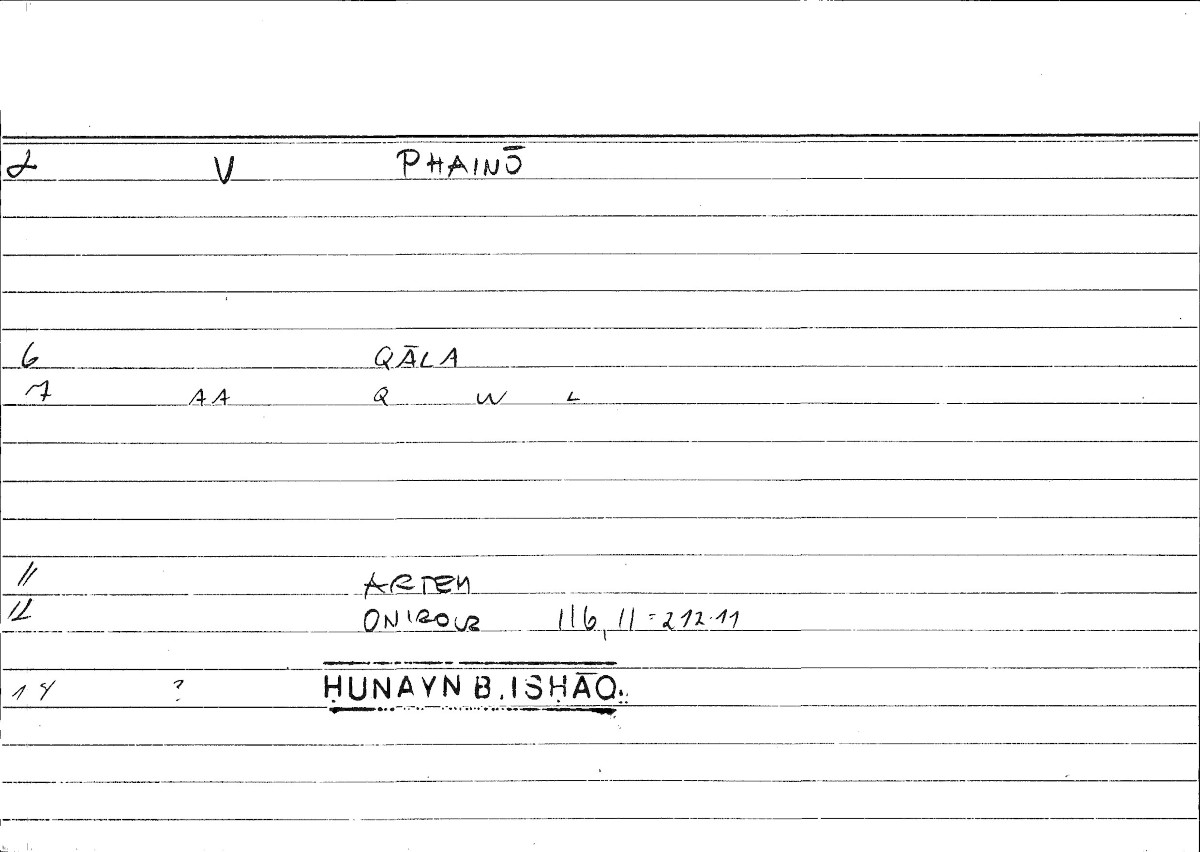 2 V PHAINŌ
6 QĀLA
7 AA Q W L
11 ARTEM
12 ONIROCR 116, 11 = 212.11
14 ? ḤUNAYN B. ISḤĀQ.